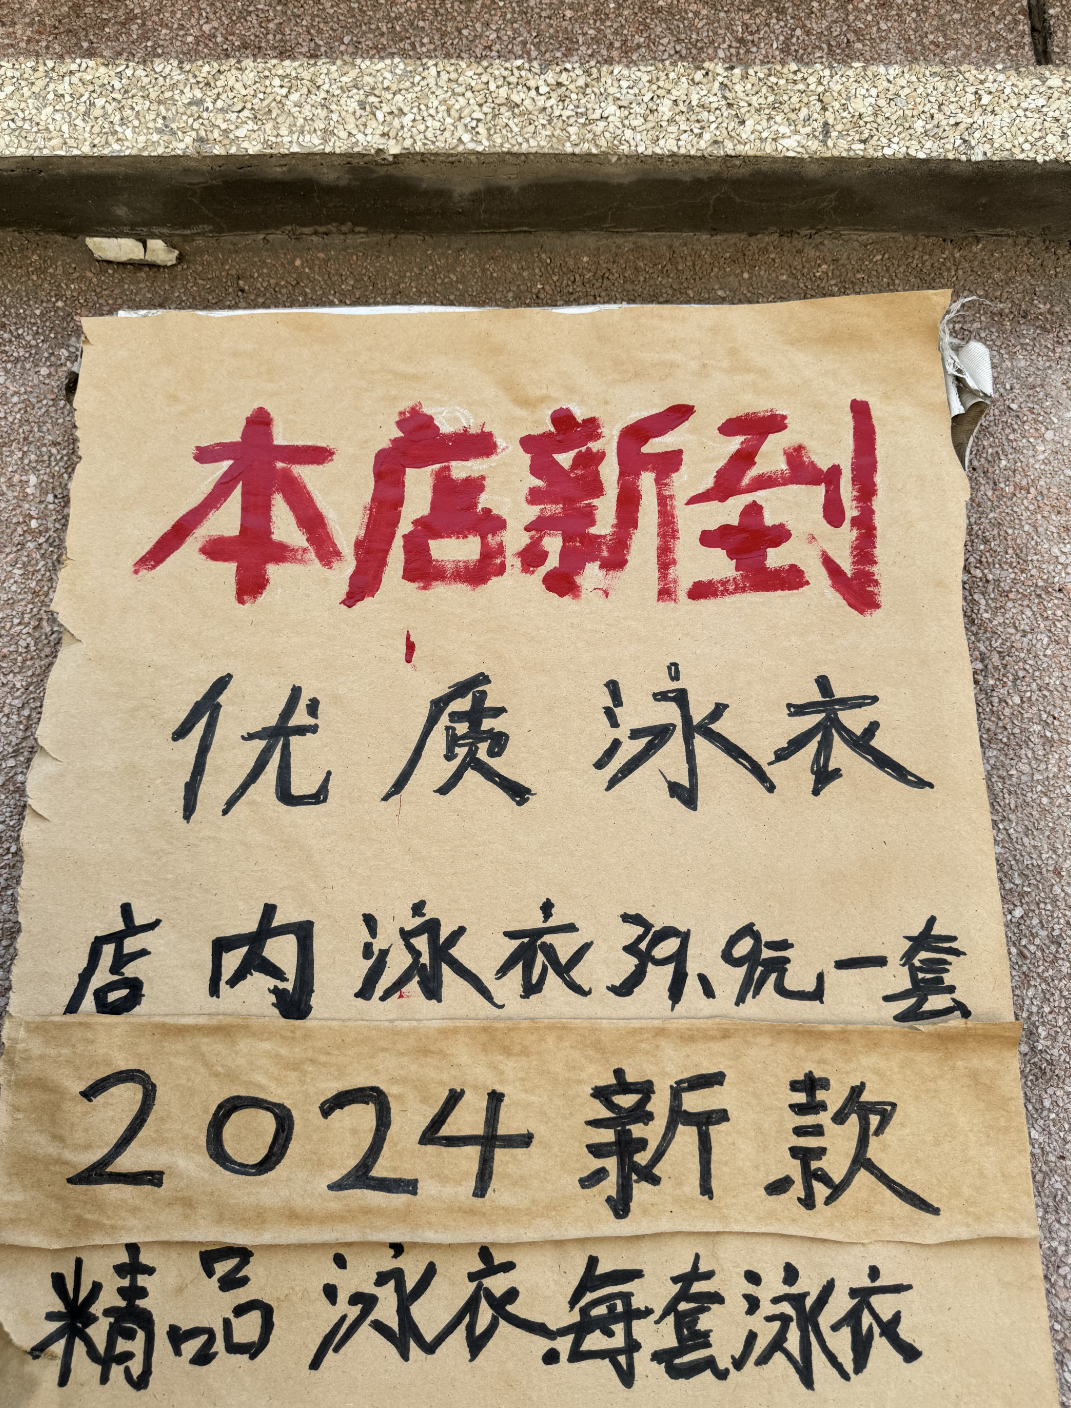 本店新到
优质泳衣
店内泳衣39、9元一套
2024新款
精品泳衣.每套泳衣